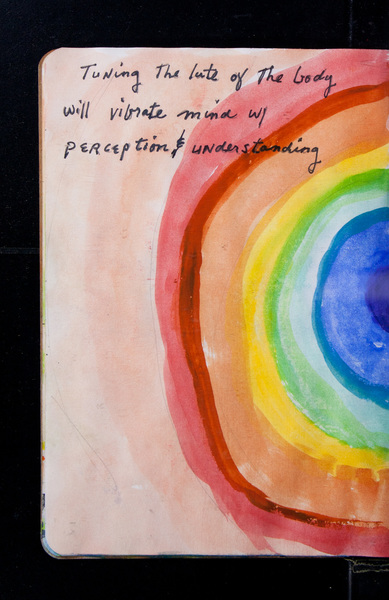 Tuning The lute of The body
will vibrate mind w/
perception & understanding